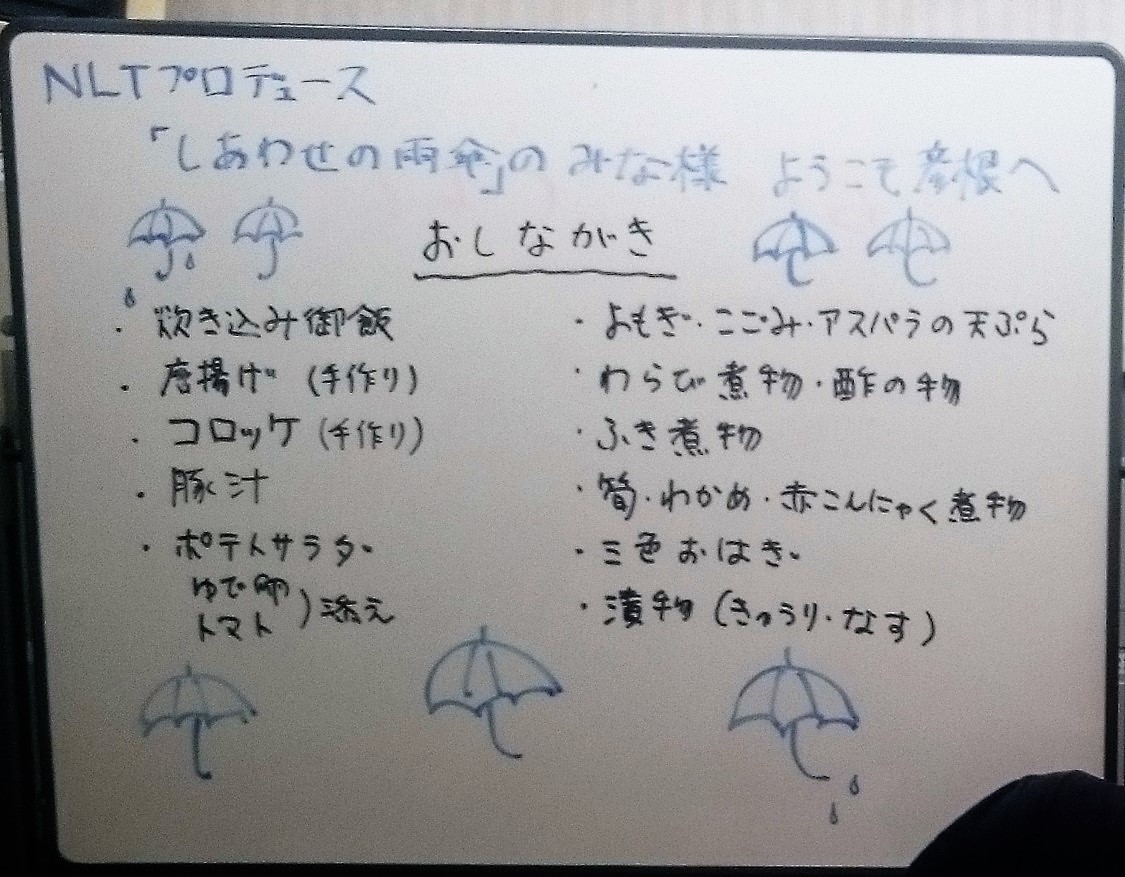 NLTプロデュース
「しあわせの雨傘」のみな様 ようこそ彦根へ
おしながき
・炊き込み御飯
・唐揚げ (手作り)
・コロッケ (手作り)
・豚汁
・ポテトサラダ
ゆで卵
トマト ) 添え
・よもぎ・こごみ・アスパラの天ぷら
・わらび煮物・酢の物
・ふき煮物
・筍・わかめ・赤こんにゃく煮物
・三色おはぎ
・漬物 (きゅうり・なす)